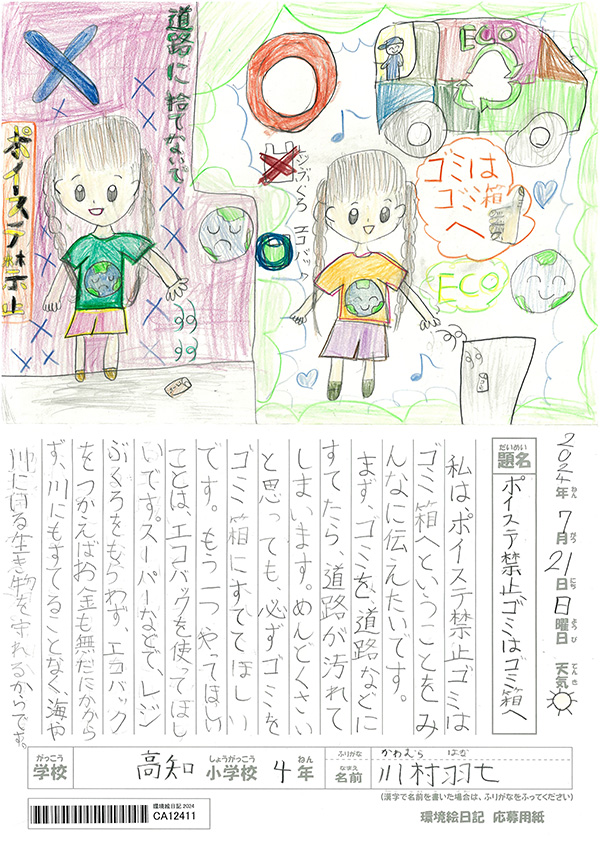 道路に捨てないで
ポイステ禁止
ECO
ゴミは
ゴミ箱
へ
レジぶくろ
エコバック
ECO
2024年7月21日日曜日 天気
ねん がつ にち ようび てんき
だいめい
題名
ポイステ禁止ゴミはゴミ箱へ
私はポイステ禁止ゴミは
ゴミ箱へということをみ
んなに伝えたいです。
まず、ゴミを、道路などに
すてたら、道路が汚れて
しまいます。めんどくさい
と思っても、必ずゴミを
ゴミ箱にすててほしい
です。もう一つやってほしい
ことは、エコバックを使ってほし
いです。スーパーなどで、レジ
ぶくろをもらわず エコバック
をつかえばお金も無だにかから
ず、川にもすてることなく、海や
川に居る生き物を守れるからです。
がっこう
学校
高知
しょうがっこう
小学校
4
ねん
年
ふりがな
かわむら はな
なまえ
名前
川村羽七
(漢字で名前を書いた場合は、ふりがなをふってください)
環境絵日記2024
CA12411
環境絵日記 応募用紙